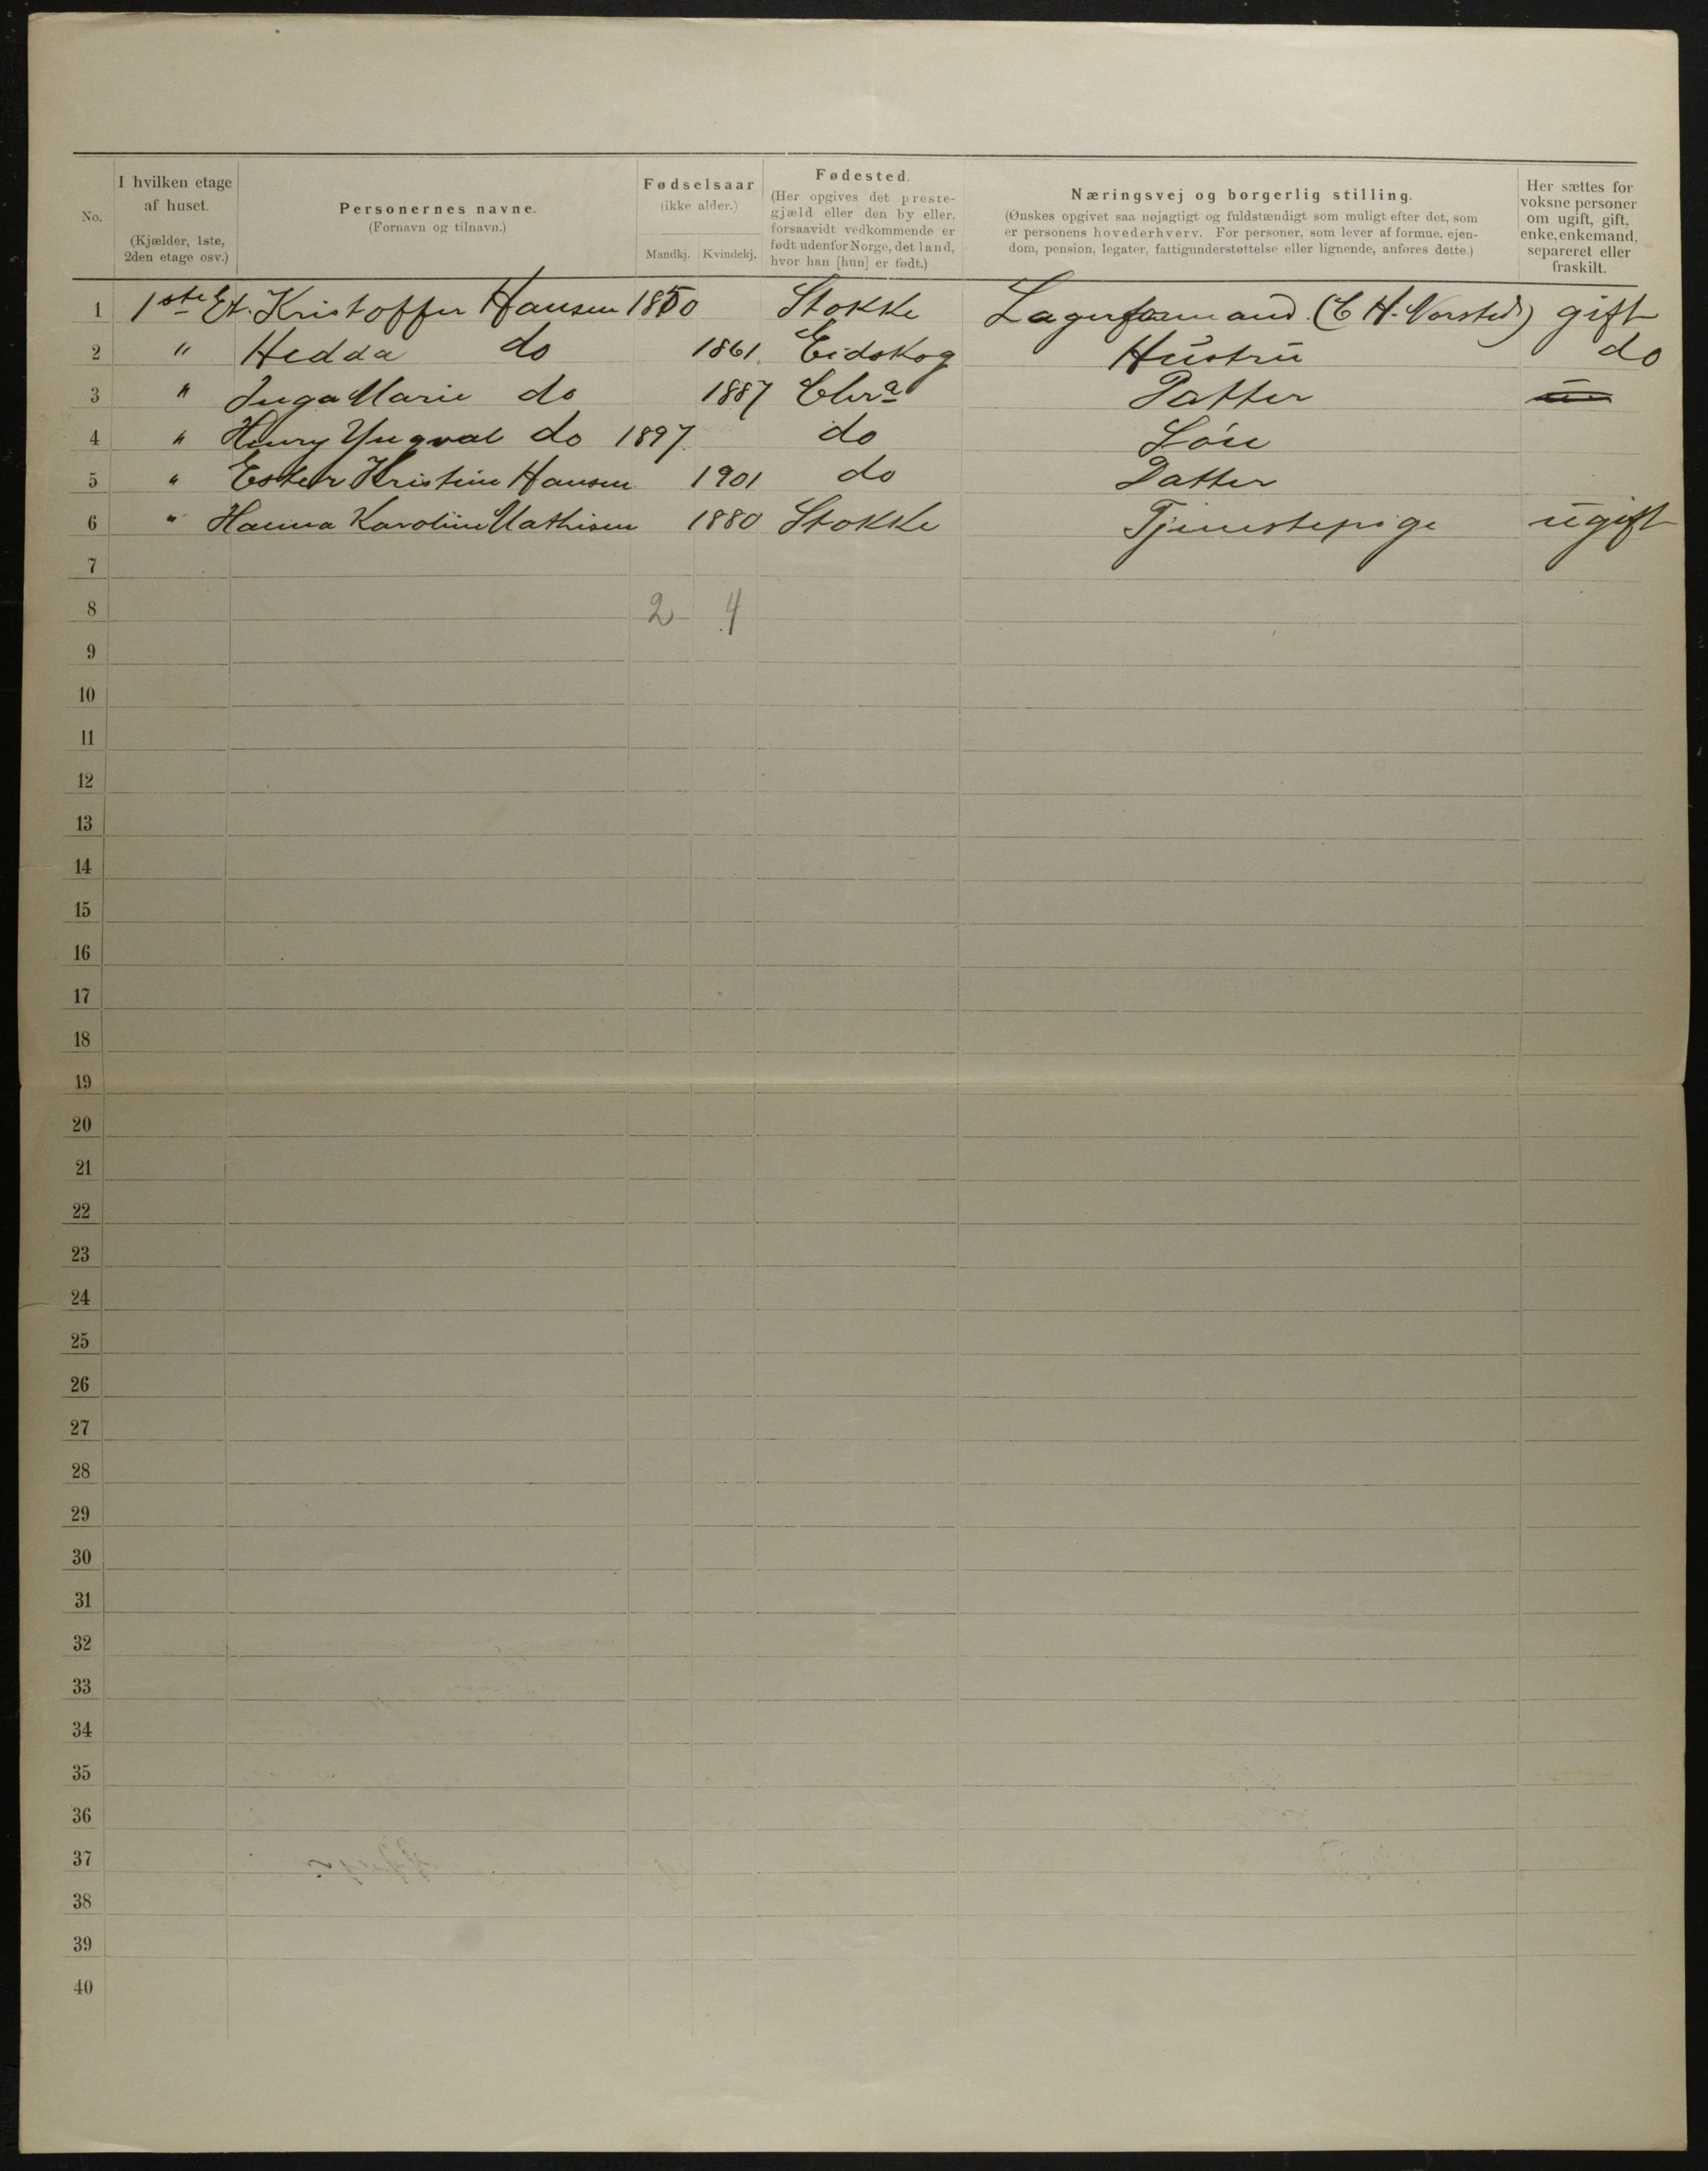 No.
I hvilken etage
af huset.
(Kjælder, 1ste,
2den etage osv.)
Personernes navne.
(Fornavn og tilnavn.)
Fødselsaar
(ikke alder.)
Mandkj. Kvindekj.
Fødested.
(Her opgives det preste-
gjæld eller den by eller,
forsaavidt vedkommende er
født udenfor Norge, det land,
hvor han [hun] er født.)
Næringsvej og borgerlig stilling.
(Ønskes opgivet saa nøjagtigt og fuldstændigt som muligt efter det, som
er personens hovederhverv. For personer, som lever af formue, ejen-
dom, pension, legater, fattigunderstøttelse eller lignende, anføres dette.)
Her sættes for
voksne personer
om ugift, gift,
enke, enkemand,
separeret eller
fraskilt.
1 1ste Et. Kristoffer Hansen 1850 Stokke Lagerformand. (E H. Norsteds) gift
2 " Hedda do 1861 Eidskog Hustru do
3 " Inga Marie do 1887 Chra Datter
4 " Henry Yngval do 1897 do Søn
5 " Ester Kristine Hansen 1901 do Datter
6 " Hanna Karoline Mathisen 1880 Stokke Tjenestepige ugift
7
8 2 4
9
10
11
12
13
14
15
16
17
18
19
20
21
22
23
24
25
26
27
28
29
30
31
32
33
34
35
36
37
38
39
40